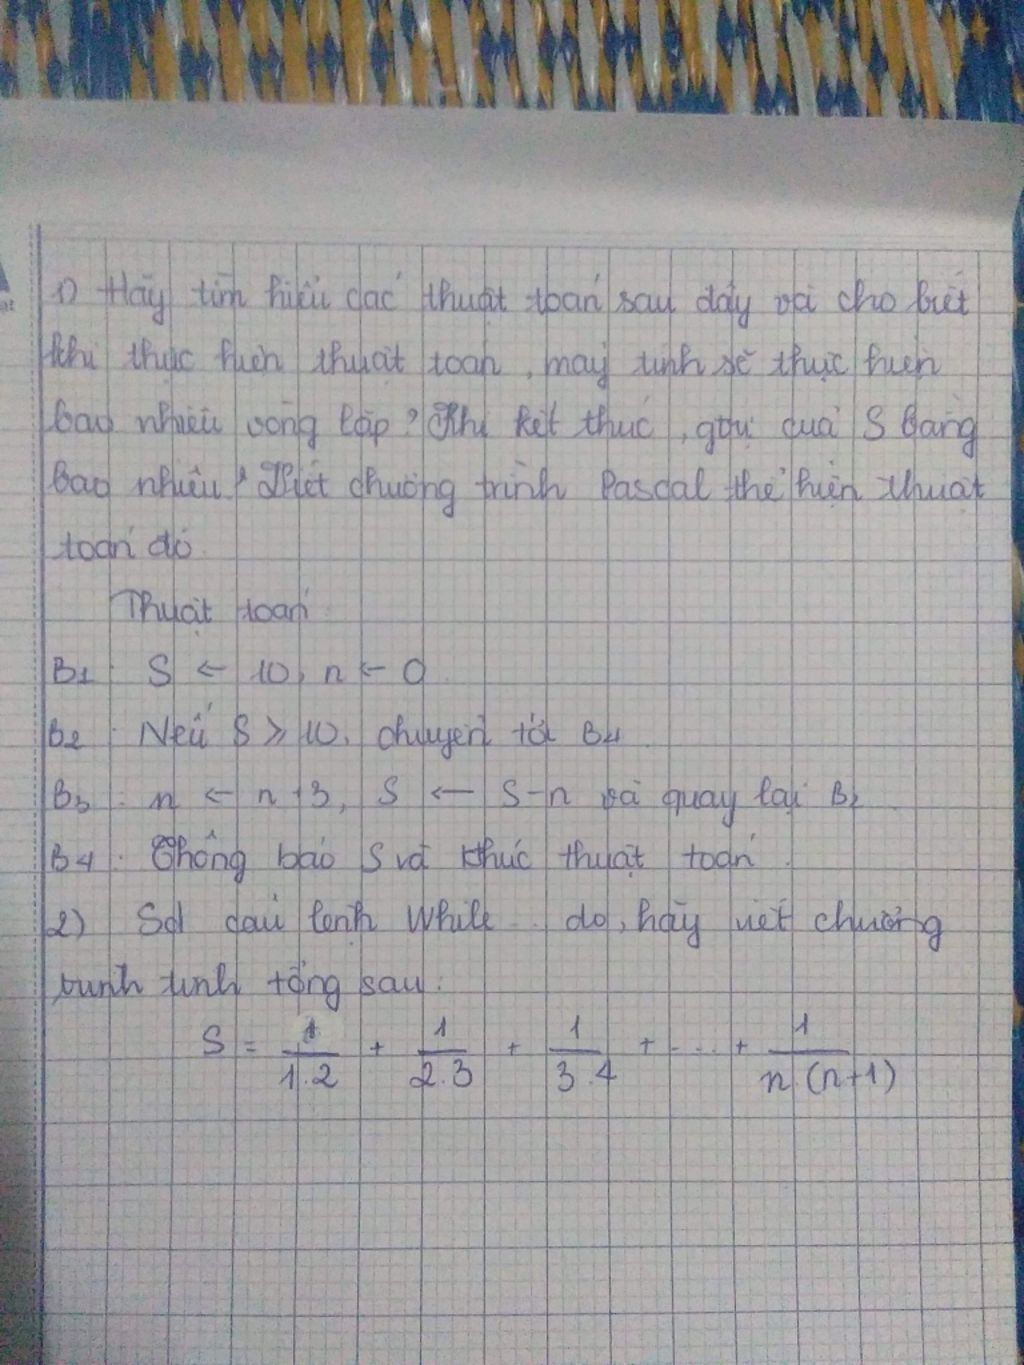 1) Hãy tìm hiểu các thuật toán sau đây và cho biết
khi thực hiện thuật toán, máy tính sẽ thực hiện
bao nhiêu vòng lặp? Khi kết thúc, giá trị của S bằng
bao nhiêu? Viết chương trình Pascal thể hiện thuật
toán đó.
Thuật toán
B1: S ← 10, n ← 0.
B2: Nếu S ≥ 10, chuyển tới B4.
B3: n ← n+3, S ← S-n và quay lại B2.
B4: Thông báo S và kthúc thuật toán.
2) Sd câu lệnh While... do, hãy viết chương
trình tính tổng sau:
S = 1/1.2 + 1/2.3 + 1/3.4 + ... + 1/n.(n+1)